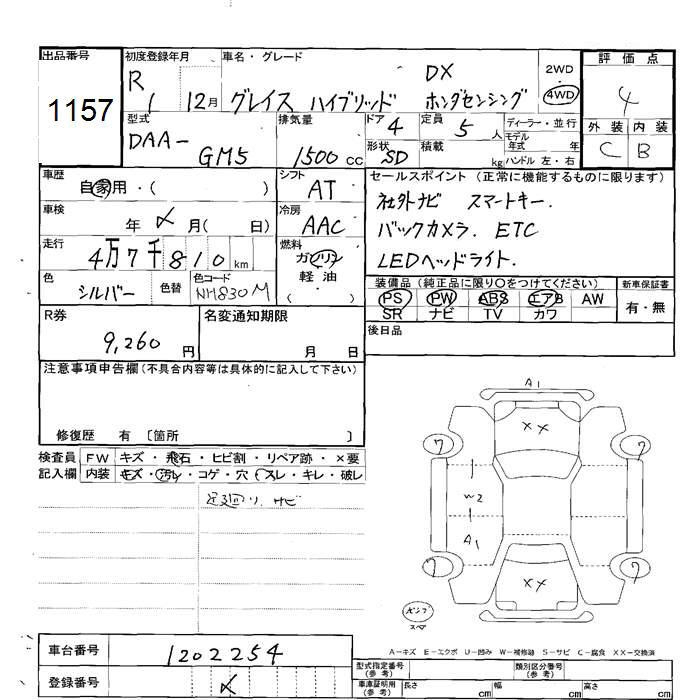 出品番号 1157
初度登録年月 R 1 12月
車名・グレード DX
グレイス ハイブリッド ホンダセンシング
2WD 4WD
評価点 4
外装 内装
C B
型式 DAA- GM5
排気量 1500 CC
ドア 4 定員 5 人
形状 SD 積載 kg
ディーラー・並行
モデル年式 年
ハンドル 左・右
車歴 自家用・( )
シフト AT
車検 年 〆 月( 日)
冷房 AAC
走行 4万7千810 km
燃料 ガソリン 軽油 ( )
色 シルバー 色替 色コード NH830M
セールスポイント(正常に機能するものに限ります)
社外ナビ スマートキー.
バックカメラ. ETC
LEDヘッドライト.
装備品(純正品に限り○をつけてください) 新車保証書
PS PW ABS エアB AW 有・無
SR ナビ TV カワ
後日品
R券 9,260 円
名変通知期限 月 日
注意事項申告欄(不具合内容等は具体的に記入して下さい)
修復歴 有 〔箇所 〕
検査員 FW キズ・飛石・ヒビ割・リペア跡・×要
記入欄 内装 キズ・汚レ・コゲ・穴・スレ・キレ・破レ
足廻り. サビ
A1
7 XX 7
W2
A1
7 XX 7
スペア
A-キズ E-エクボ U-凹み W-補修跡 S-サビ C-腐食 XX-交換済
車台番号 1202254
登録番号 〆
型式指定番号(参考) 類別区分番号(参考)
車庫証明用(参考) 長さ cm 幅 cm 高さ cm